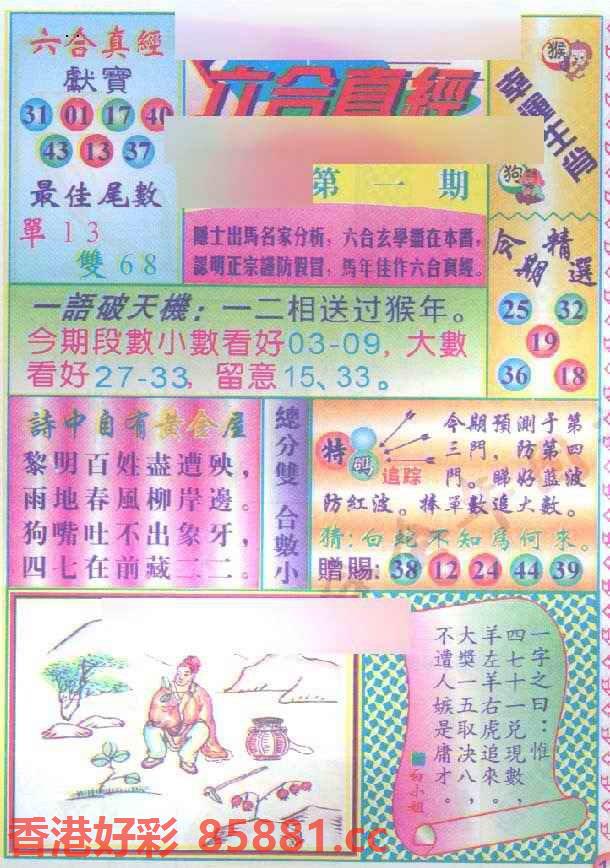 六合真經
獻寶
31 01 17 40
43 13 37
最佳尾數
單 1 3
雙 6 8
六合真經
第一期
隱士出馬名家分析，六合玄學盡在本冊，
認明正宗謹防假冒，馬年佳作六合真經。
猴
幸運生肖
狗
今期精選
25 32
19
36 18
一語破天機：一二相送过猴年。
今期段數小數看好03-09，大數
看好27-33，留意15、33。
詩中自有黃金屋
黎明百姓盡遭殃，
雨地春風柳岸邊。
狗嘴吐不出象牙，
四七在前藏二二。
總分雙 合數小
特碼
追踪
今期預測于第
三門，防第四
門。睇好藍波
防紅波。捧單數追大數。
猜：白蛇不知為何來。
贈賜：38 12 24 44 39
一字之曰：惟
四七十一兌現數，
羊左羊右虎追來。
大獎一五取決八，
不遭人嫉是庸才。
白小姐
香港好彩 85881.cc